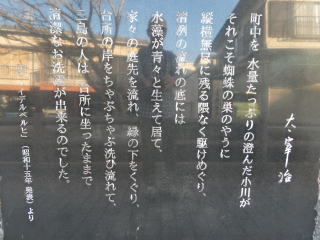 太宰治
町中を水量たっぷりの澄んだ小川が
それこそ蜘蛛の巣のやうに
縦横無尽に残る隈なく駆けめぐり、
清冽の流れの底には
水藻が青々と生えて居て、
家々の庭先を流れ、縁の下をくぐり、
台所の岸をちゃぷちゃぷ洗ひ流れて、
三島の人は台所に坐ったままで
清潔なお洗濯が出来るのでした。
イデルベルヒ」(昭和十五年 発表)より